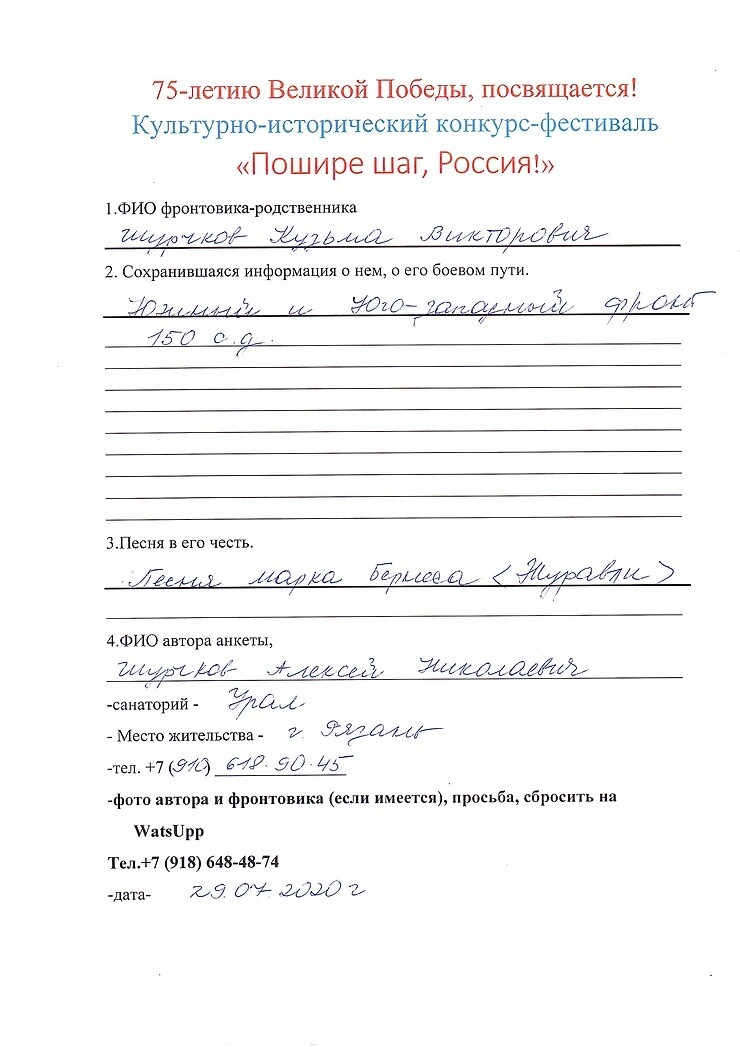 75-летию Великой Победы, посвящается!
Культурно-исторический конкурс-фестиваль
«Пошире шаг, Россия!»
1.ФИО фронтовика-родственника
Шурчков Кузьма Викторович
2. Сохранившаяся информация о нем, о его боевом пути.
Южный и Юго-западный фронт
150 с.д.
3.Песня в его честь.
Песня марка Бернеса <Журавли>
4.ФИО автора анкеты,
Шурчков Алексей Николаевич
-санаторий - Урал
- Место жительства - г. Рязань
-тел. +7 (910) 618.90.45
-фото автора и фронтовика (если имеется), просьба, сбросить на
WatsUpp
Тел.+7 (918) 648-48-74
-дата- 29.07.2020 г